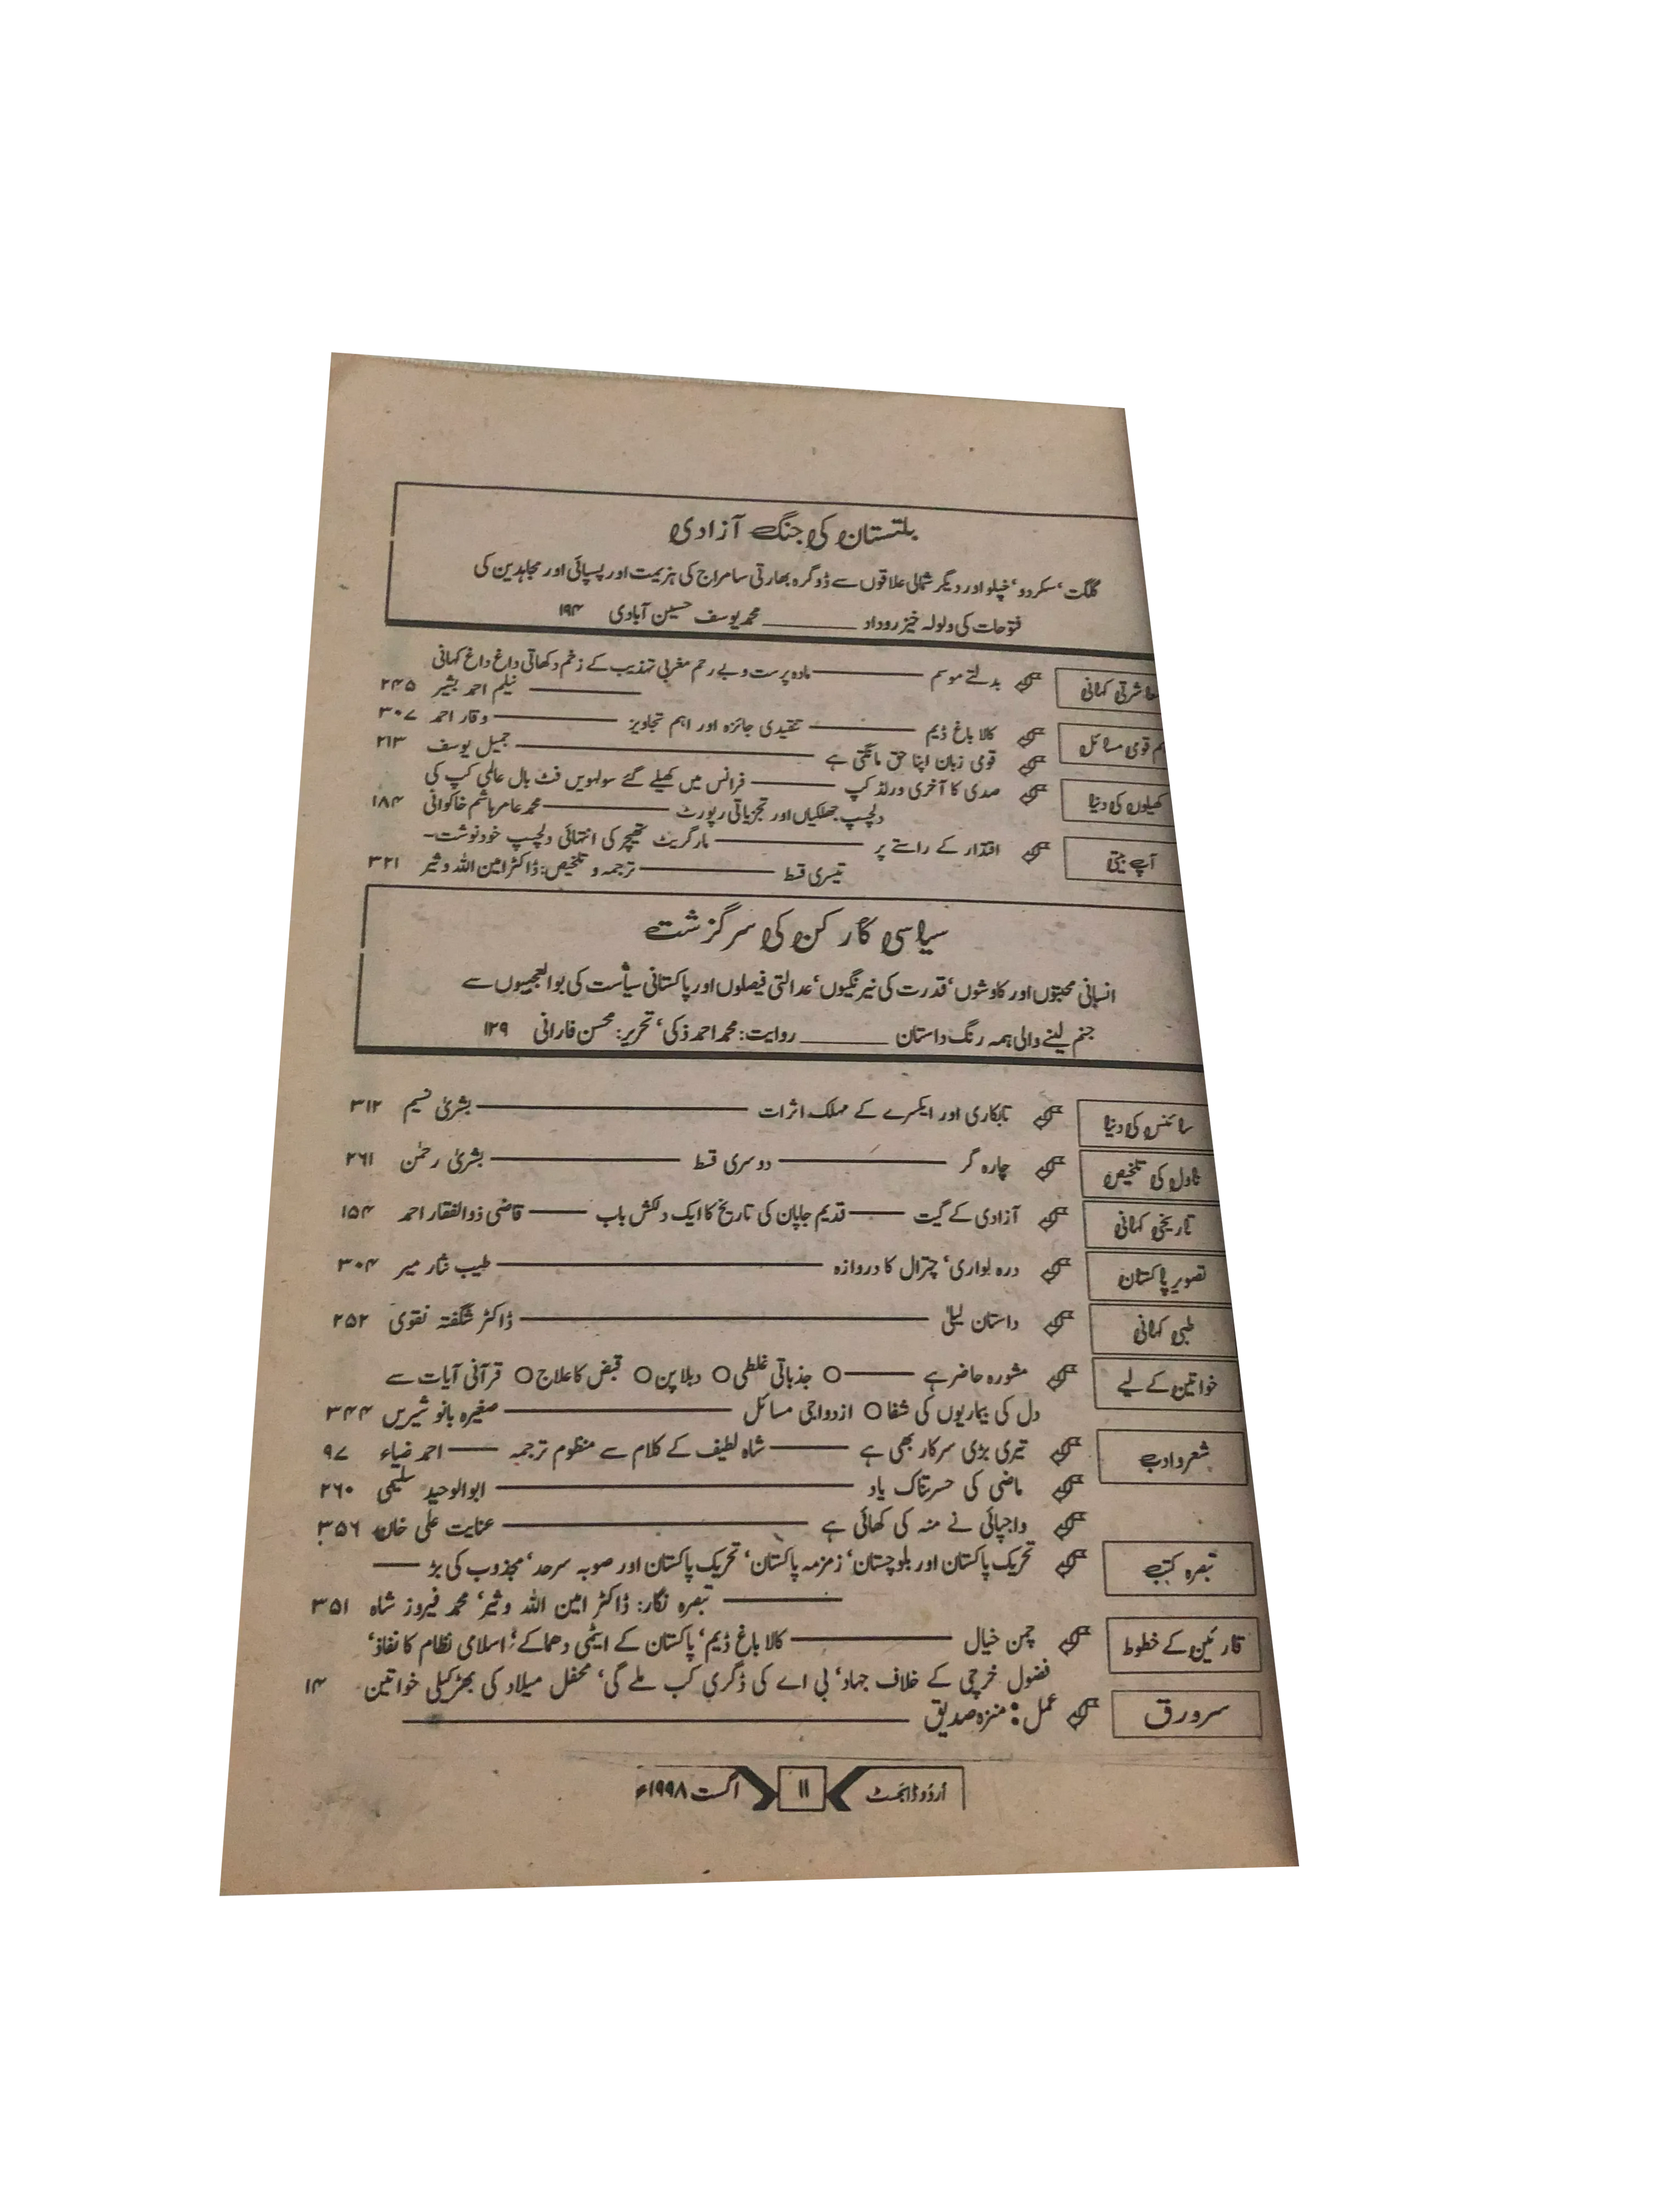 بلتستان کی جنگ آزادی
گلگت، سکردو، خپلو اور دیگر شمالی علاقوں سے ڈوگرہ بھارتی سامراج کی ہزیمت اور پسپائی اور مجاہدین کی
فتوحات کی ولولہ خیز روداد ــــــ محمد یوسف حسین آبادی ۱۹۴
معاشرتی کہانی بدلتے موسم ــــــ مادہ پرست و بے رحم مغربی تہذیب کے زخم دکھاتی داغ داغ کہانی
ــــــ نیلم احمد بشیر ۲۴۵
اہم قومی مسائل کالا باغ ڈیم ــــــ تنقیدی جائزہ اور اہم تجاویز ــــــ وقار احمد ۳۰۷
قومی زبان اپنا حق مانگتی ہے ــــــ جمیل یوسف ۲۱۳
کھیلوں کی دنیا صدی کا آخری ورلڈ کپ ــــــ فرانس میں کھیلے گئے سولہویں فٹ بال عالمی کپ کی
دلچسپ جھلکیاں اور تجزیاتی رپورٹ ــــــ محمد عامر ہاشم خاکوانی ۱۸۴
آپ بیتی اقتدار کے راستے پر ــــــ مارگریٹ تھیچر کی انتہائی دلچسپ خودنوشت۔
تیسری قسط ــــــ ترجمہ و تلخیص: ڈاکٹر امین اللہ وثیر ۳۲۱
سیاسی کارکن کی سرگزشت
انسانی محبتوں اور کاوشوں، قدرت کی نیرنگیوں، عدالتی فیصلوں اور پاکستانی سیاست کی بوالعجبیوں سے
جنم لینے والی ہمہ رنگ داستان ــــــ روایت: محمد احمد ذکی، تحریر: محسن فارانی ۱۲۹
سائنس کی دنیا تابکاری اور ایکسرے کے مہلک اثرات ــــــ بشریٰ نسیم ۳۱۲
ناول کی تلخیص چارہ گر ــــــ دوسری قسط ــــــ بشریٰ رحمٰن ۲۶۱
تاریخی کہانی آزادی کے گیت ــــــ قدیم جاپان کی تاریخ کا ایک دلکش باب ــــــ قاضی ذوالفقار احمد ۱۵۴
تصویر پاکستان درہ لواری، چترال کا دروازہ ــــــ طیب نثار میر ۳۰۴
طبی کہانی داستان لیلیٰ ــــــ ڈاکٹر شگفتہ نقوی ۲۵۲
خواتین کے لیے مشورہ حاضر ہے ــــــ ○ جذباتی غلطی ○ دبلا پن ○ قبض کا علاج ○ قرآنی آیات سے
دل کی بیماریوں کی شفا ○ ازدواجی مسائل ــــــ صغیرہ بانو شیریں ۳۴۴
شعر و ادب تیری بڑی سرکار بھی ہے ــــــ شاہ لطیف کے کلام سے منظوم ترجمہ ــــــ احمد ضیاء ۹۷
ماضی کی حسرتناک یاد ــــــ ابوالوحید سلیمی ۲۶۰
واجپائی نے منہ کی کھائی ہے ــــــ عنایت علی خان ۳۵۶
تبصرہ کتب تحریک پاکستان اور بلوچستان، زمزمہ پاکستان، تحریک پاکستان اور صوبہ سرحد، مجذوب کی بڑ ــــــ
ــــــ تبصرہ نگار: ڈاکٹر امین اللہ وثیر، محمد فیروز شاہ ۳۵۱
قارئین کے خطوط چمن خیال ــــــ کالا باغ ڈیم، پاکستان کے ایٹمی دھماکے، اسلامی نظام کا نفاذ،
فضول خرچی کے خلاف جہاد، بی اے کی ڈگری کب ملے گی، محفل میلاد کی بھڑکیلی خواتین ۱۴
سرورق عمل: منزہ صدیق ــــــ
اُردو ڈائجسٹ ۱۱ اگست ۱۹۹۸ء